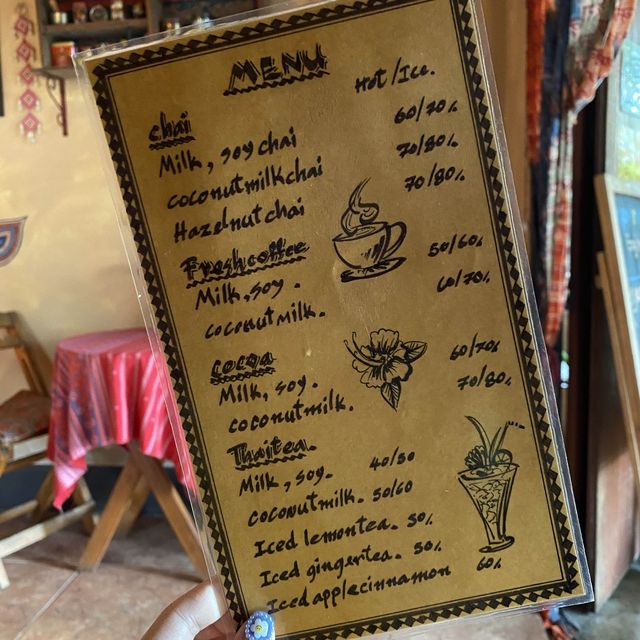 MENU
Hot/Ice.
chai
Milk, soy chai 60/70.
coconutmilkchai 70/80.
Hazelnutchai 70/80.
Freshcoffee
Milk, soy. 50/60.
coconutmilk. 60/70.
cocoa
Milk, soy. 60/70.
coconutmilk. 70/80.
Thaitea.
Milk, soy. 40/50
coconutmilk. 50/60
Iced lemontea. 50.
Iced gingertea. 50.
Iced applecinnamon 60.